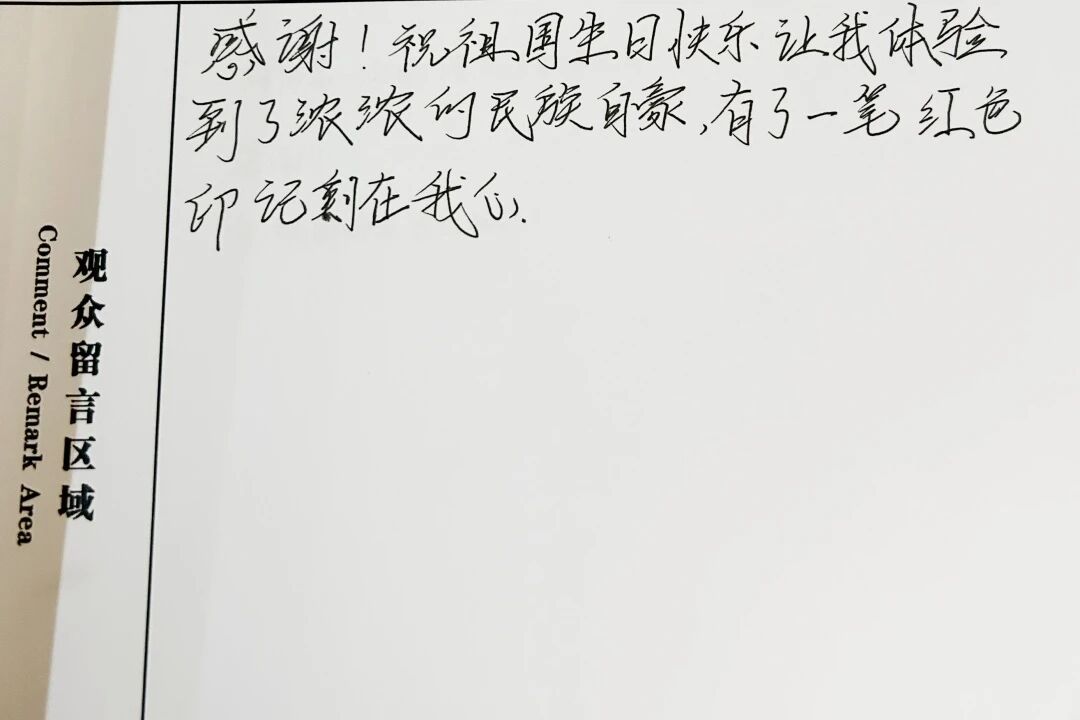 感谢！祝祖国生日快乐 让我体验
到了浓浓的民族自豪，有了一笔红色
印记刻在我心.
观众留言区域
Comment / Remark Area